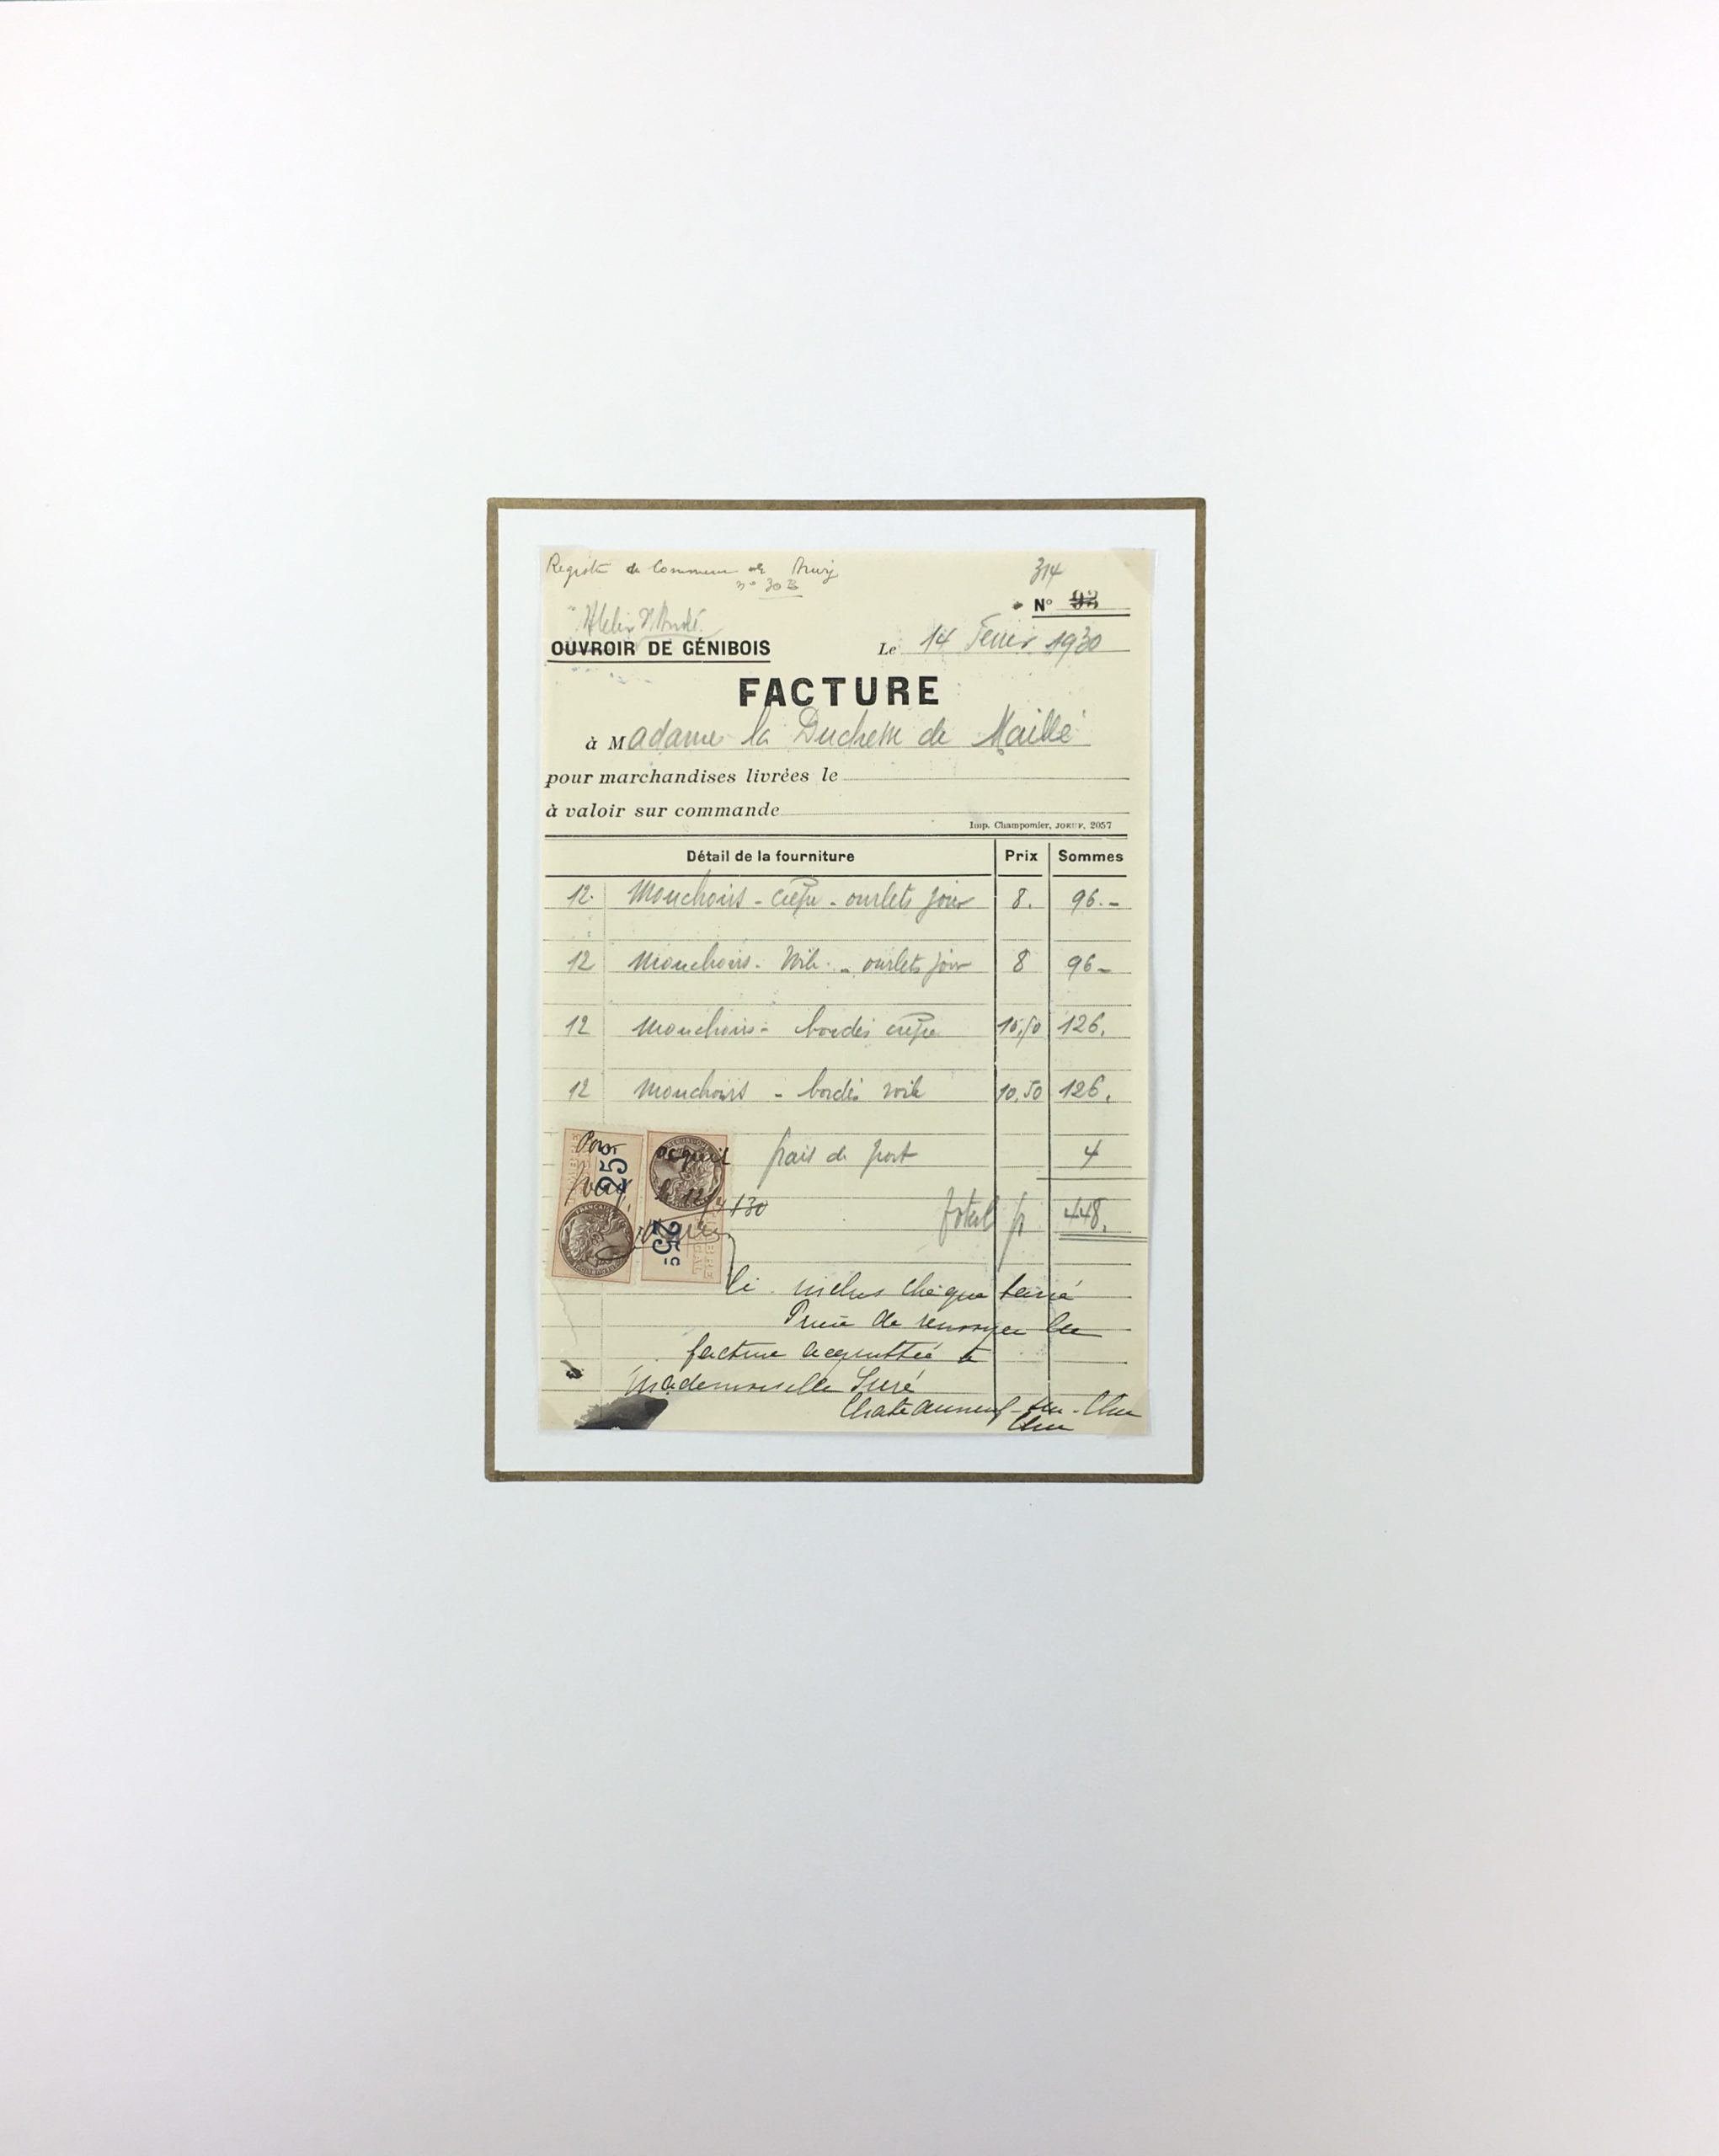 Registre de Commerce
n° 30B
314
N° 93
Atelier
OUVROIR DE GÉNIBOIS
Le 14 Fevrier 1930
FACTURE
à Madame la Duchesse de Maillé
pour marchandises livrées le
à valoir sur commande
Imp. Champomier, JOEUF, 2057
Détail de la fourniture Prix Sommes
12. Mouchoirs - crêpe - ourlets jour 8. 96.-
12 Mouchoirs - voile - ourlets jour 8 96-
12 Mouchoirs - bordés crêpe 10,50 126.
12 Mouchoirs - bordés voile 10,50 126.
frais de port 4
total fr 448.
Pour acquit
25
25
Ci inclus chèque barré
Prière de renvoyer la
facture acquittée à
Mademoiselle Suré
Chateauneuf-sur-Cher
Cher